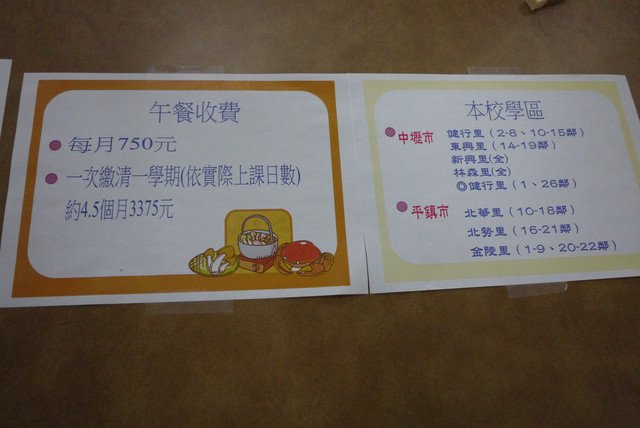 午餐收費
每月750元
一次繳清一學期(依實際上課日數)
約4.5個月3375元
本校學區
中壢市 健行里（2-8、10-15鄰）
東興里（14-19鄰）
新興里(全)
林森里(全)
◎健行里（1、26鄰）
平鎮市 北華里（10-18鄰）
北勢里（16-21鄰）
金陵里（1-9、20-22鄰）